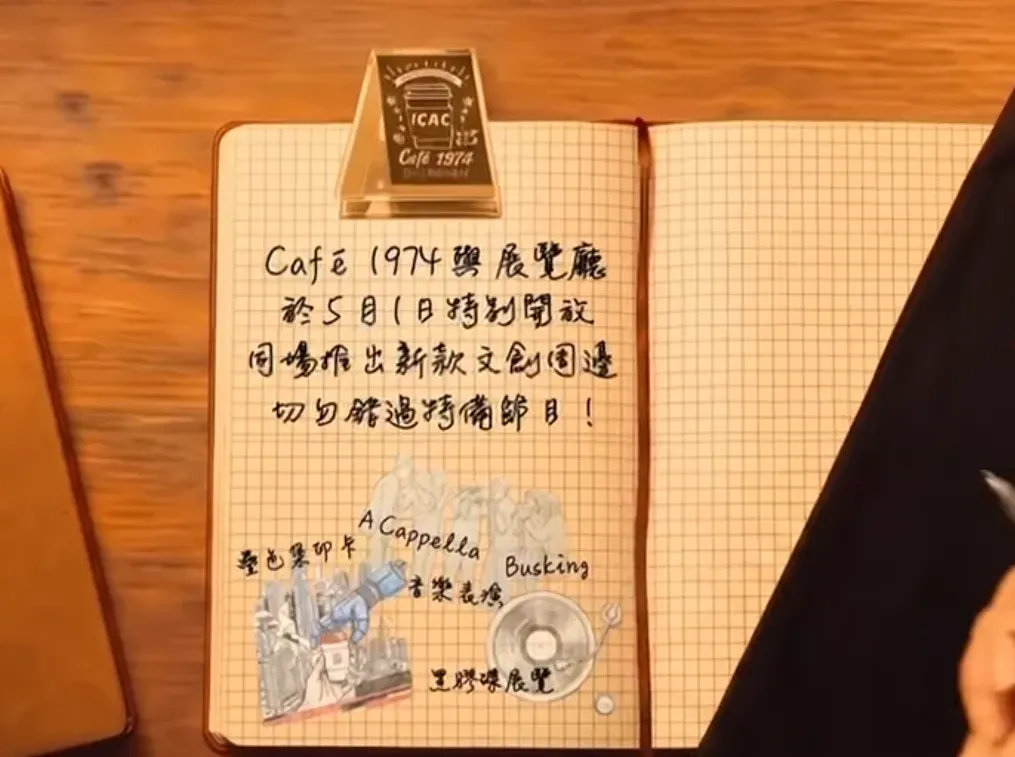 ICAC
Café 1974
Café 1974與展覽廳
於5月1日特別開放
同場推出新款文創周邊
切勿錯過特備節目!
A Cappella
Busking
音樂表演
疊色集印卡
黑膠碟展覽